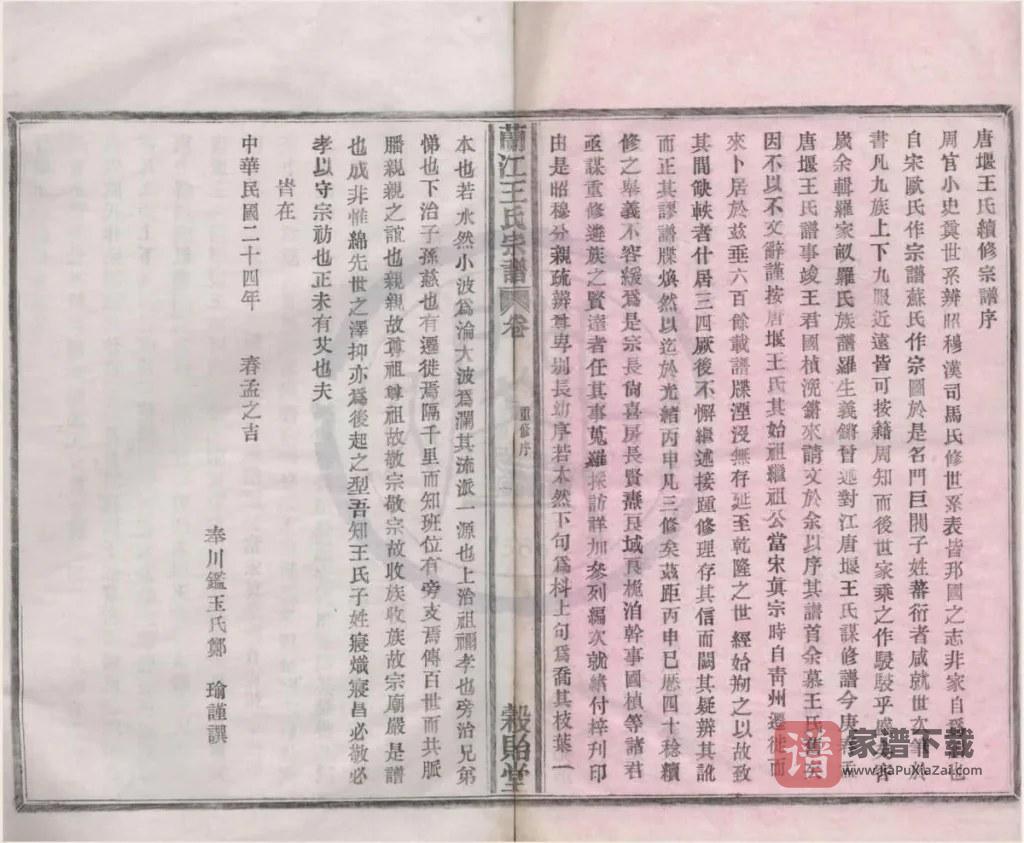 唐堰王氏續修宗譜序
周官小史奠世系辨昭穆漢司馬氏修世系表皆邦國之志非家自爲也
自宋歐氏作宗譜蘇氏作宗圖於是名門巨閥子姓蕃衍者咸就世次筆於
書凡九族上下九服近遠皆可按籍周知而後世家乘之作駸駸乎盛
廣余輯羅家畝羅氏族譜羅生義鏘曾述對江唐堰王氏謀修譜今庚
唐堰王氏譜事竣王君國楨浼鏘來請文於余以序其譜首余慕王氏舊矣
因不以不文辭謹按唐堰王氏其始祖繼祖公當宋真宗時自青州遷徙而
來卜居於茲垂六百餘載譜牒湮沒無存延至乾隆之世經始刱之以故致
其間缺軼者什居三四厥後不懈繼述接踵修理存其信而闕其疑辨其訛
而正其謬譜牒煥然以迄於光緒丙申凡三修矣茲距丙申已歷四十稔續
修之舉義不容緩爲是宗長尙喜房長賢燾良域良桅洎幹事國楨等諸君
亟謀重修遴族之賢達者任其事蒐羅採訪詳加參列編次就緒付梓刊印
由是昭穆分親疏辨尊卑別長幼序若木然下句爲科上句爲喬其枝葉一
蘭江王氏宗譜 卷 重修序 穀貽堂
本也若水然小波爲淪大波爲瀾其流派一源也上治祖禰孝也旁治兄弟
悌也下治子孫慈也有遷徙焉隔千里而知班位有旁支焉傳百世而共脈
膰親親之誼也親親故尊祖尊祖故敬宗敬宗故收族收族故宗廟嚴是譜
也成非惟綿先世之澤抑亦爲後起之型吾知王氏子姓寖熾寖昌必敬必
孝以守宗祊也正未有艾也夫
旹在
中華民國二十四年 春孟之吉
奉川鑑玉氏鄭 瑜謹譔
譜
家譜下载
www.JiaPuXiaZai.com